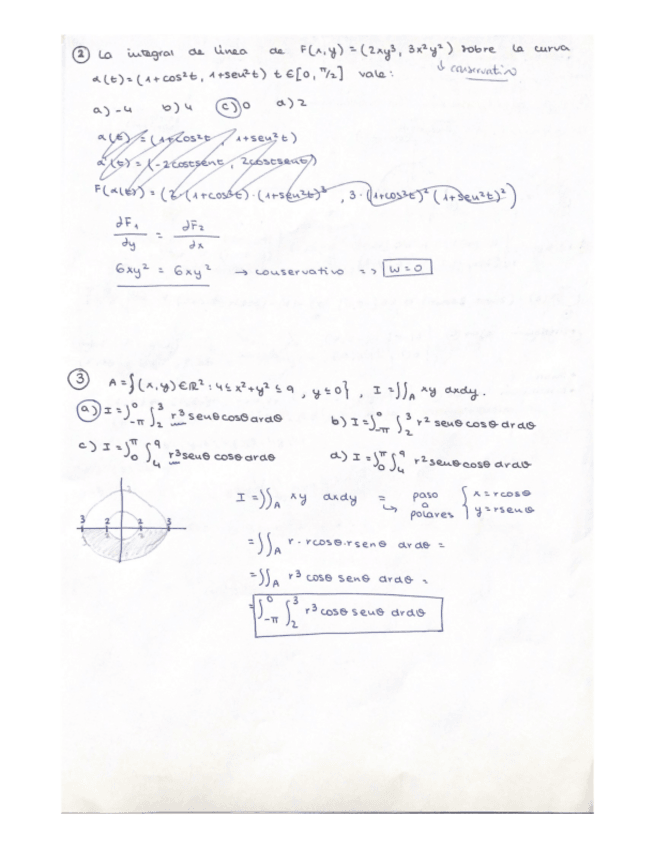 ② La integral de línea de F(x,y) = (2xy³, 3x²y²) sobre la curva
↓ conservativo
α(t) = (1+cos²t, 1+sen²t) t∈[0, π/2] vale:
a) -4 b) 4 c) 0 d) 2
α(t) = (1+cos²t, 1+sen²t)
α'(t) = (-2costsent, 2costsent)
F(α(t)) = (2·(1+cos²t)·(1+sen²t)³, 3·(1+cos²t)²(1+sen²t)²)
∂F₁/∂y = ∂F₂/∂x
6xy² = 6xy² → conservativo => W=0
③ A = {(x,y)∈ℝ² : 4≤x²+y²≤9, y≤0}, I = ∬_A xy dxdy.
a) I = ∫_{-π}^{0} ∫_2^3 r³ senθcosθ drdθ b) I = ∫_{-π}^{0} ∫_2^3 r² senθcosθ drdθ
c) I = ∫_0^π ∫_4^9 r³ senθcosθ drdθ d) I = ∫_0^π ∫_4^9 r² senθcosθ drdθ
3 2 2 3
2 2
I = ∬_A xy dxdy = ↳ paso a polares { x = rcosθ
y = rsenθ
= ∬_A r·rcosθ·rsenθ drdθ =
= ∬_A r³ cosθ senθ drdθ =
= ∫_{-π}^{0} ∫_2^3 r³ cosθ senθ drdθ